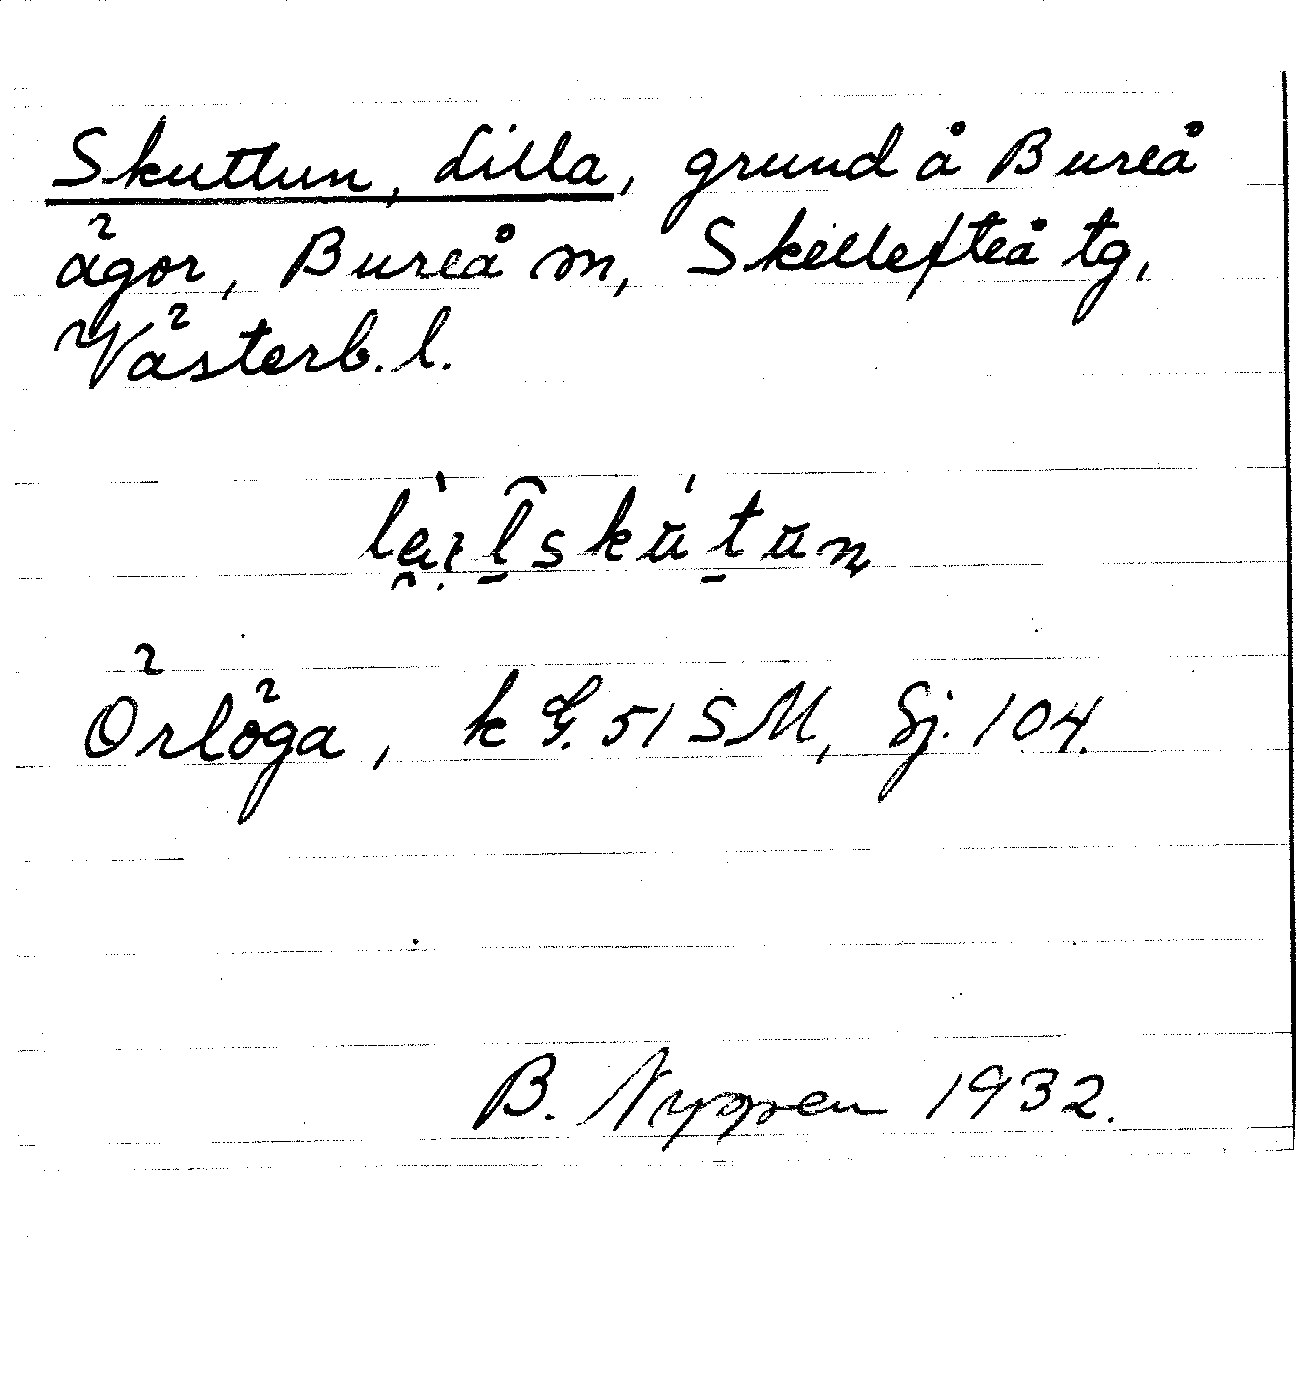 Skuttun, Lilla, grund å Bureå
ägor, Bureå sn, Skellefteå tg,
Västerb. l.
Örlöga, k G. 51 SM, Sj. 104.
B. Nyppen 1932.